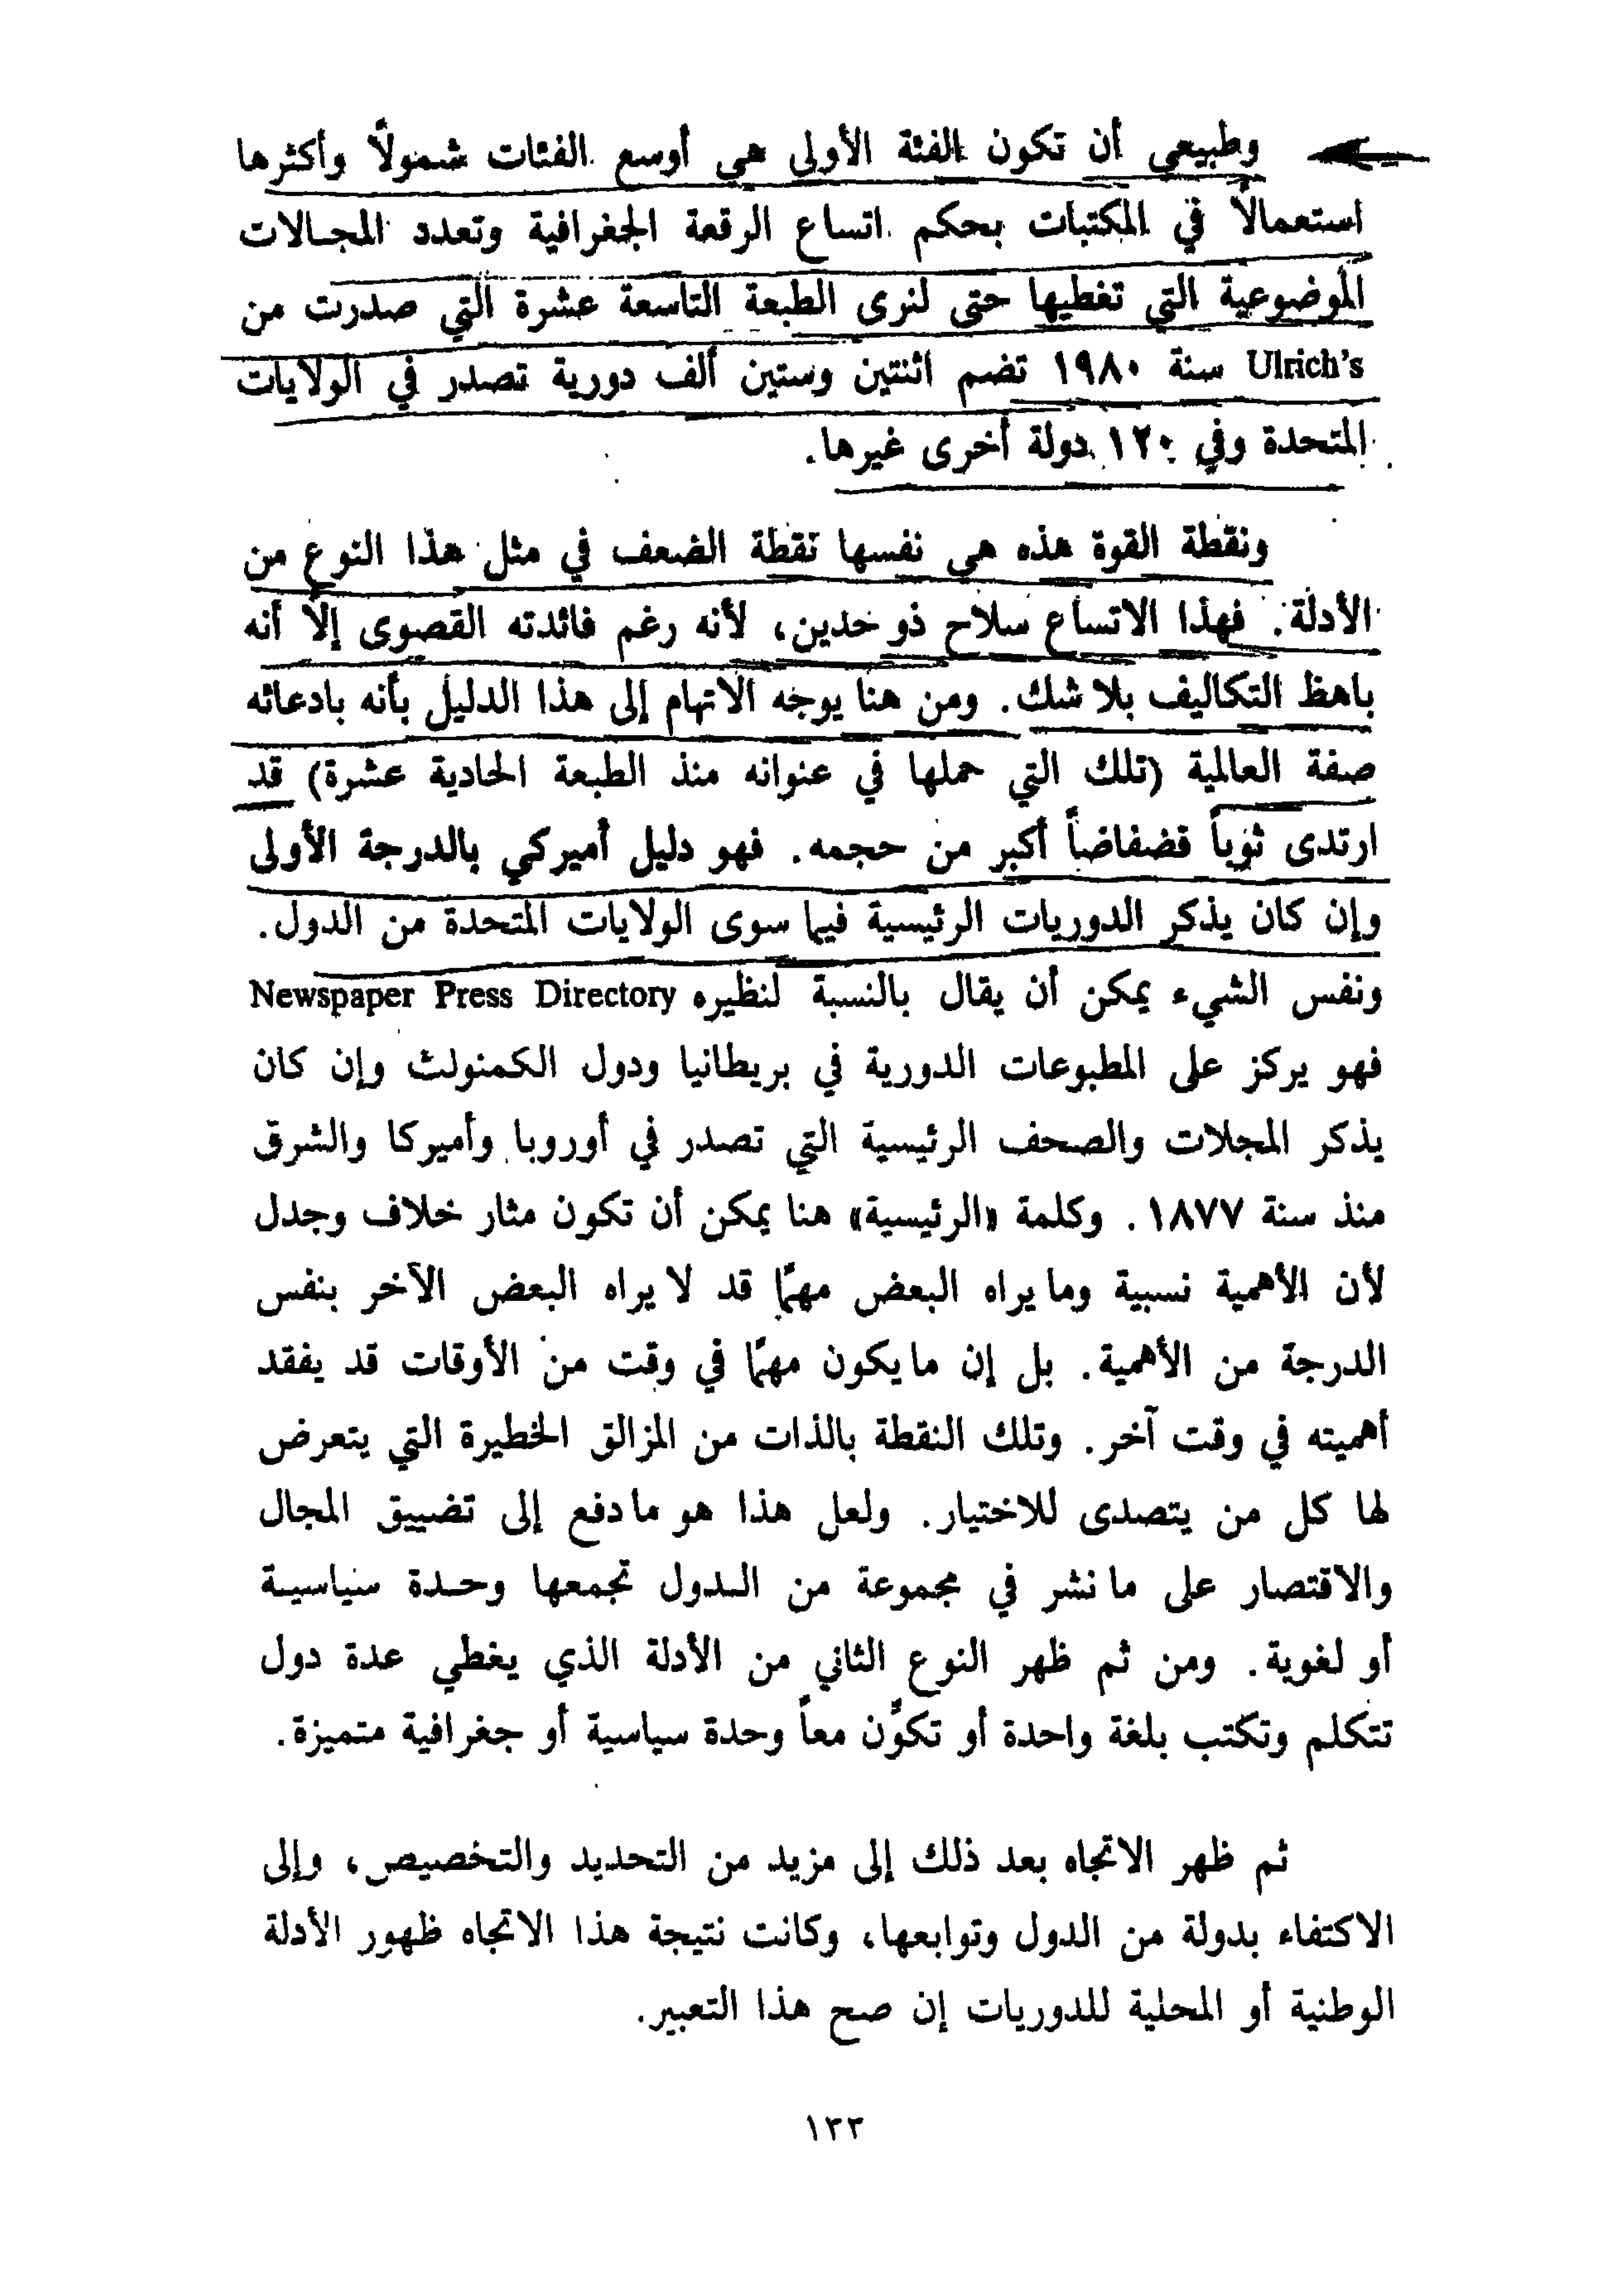 وطبيعي أن تكون الفئة الأولى هي أوسع الفئات شمولاً وأكثرها
استعمالاً في المكتبات بحكم اتساع الرقعة الجغرافية وتعدد المجالات
الموضوعية التي تغطيها حتى لنرى الطبعة التاسعة عشرة التي صدرت من
Ulrich's سنة ١٩٨٠ تضم اثنتين وستين ألف دورية تصدر في الولايات
المتحدة وفي ١٢٠ دولة أخرى غيرها.
ونقطة القوة هذه هي نفسها نقطة الضعف في مثل هذا النوع من
الأدلة. فهذا الاتساع سلاح ذو حدين، لأنه رغم فائدته القصوى إلاّ أنه
باهظ التكاليف بلا شك. ومن هنا يوجه الاتهام إلى هذا الدليل بأنه بادعائه
صفة العالمية (تلك التي حملها في عنوانه منذ الطبعة الحادية عشرة) قد
ارتدى ثوباً فضفاضاً أكبر من حجمه. فهو دليل أميركي بالدرجة الأولى
وإن كان يذكر الدوريات الرئيسية فيما سوى الولايات المتحدة من الدول.
ونفس الشيء يمكن أن يقال بالنسبة لنظيره Newspaper Press Directory
فهو يركز على المطبوعات الدورية في بريطانيا ودول الكمنولث وإن كان
يذكر المجلات والصحف الرئيسية التي تصدر في أوروبا وأميركا والشرق
منذ سنة ١٨٧٧. وكلمة «الرئيسية» هنا يمكن أن تكون مثار خلاف وجدل
لأن الأهمية نسبية وما يراه البعض مهمًا قد لا يراه البعض الآخر بنفس
الدرجة من الأهمية. بل إن ما يكون مهمًا في وقت من الأوقات قد يفقد
أهميته في وقت آخر. وتلك النقطة بالذات من المزالق الخطيرة التي يتعرض
لها كل من يتصدى للاختيار. ولعل هذا هو ما دفع إلى تضييق المجال
والاقتصار على ما نشر في مجموعة من الدول تجمعها وحدة سياسية
أو لغوية. ومن ثم ظهر النوع الثاني من الأدلة الذي يغطي عدة دول
تتكلم وتكتب بلغة واحدة أو تكوّن معاً وحدة سياسية أو جغرافية متميزة.
ثم ظهر الاتجاه بعد ذلك إلى مزيد من التحديد والتخصيص، وإلى
الاكتفاء بدولة من الدول وتوابعها، وكانت نتيجة هذا الاتجاه ظهور الأدلة
الوطنية أو المحلية للدوريات إن صح هذا التعبير.
١٣٣